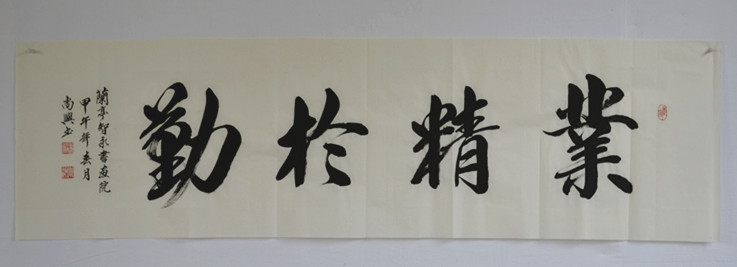 業精於勤
蘭亭智永書画院
甲午年春月
尚興书